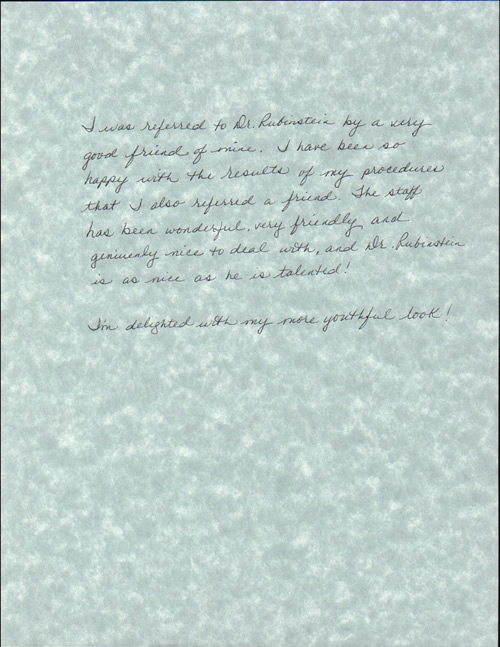 I was referred to Dr. Rubinstein by a very
good friend of mine. I have been so
happy with the results of my procedures
that I also referred a friend. The staff
has been wonderful, very friendly and
geniuenly nice to deal with, and Dr. Rubinstein
is as nice as he is talented!
I'm delighted with my more youthful look!